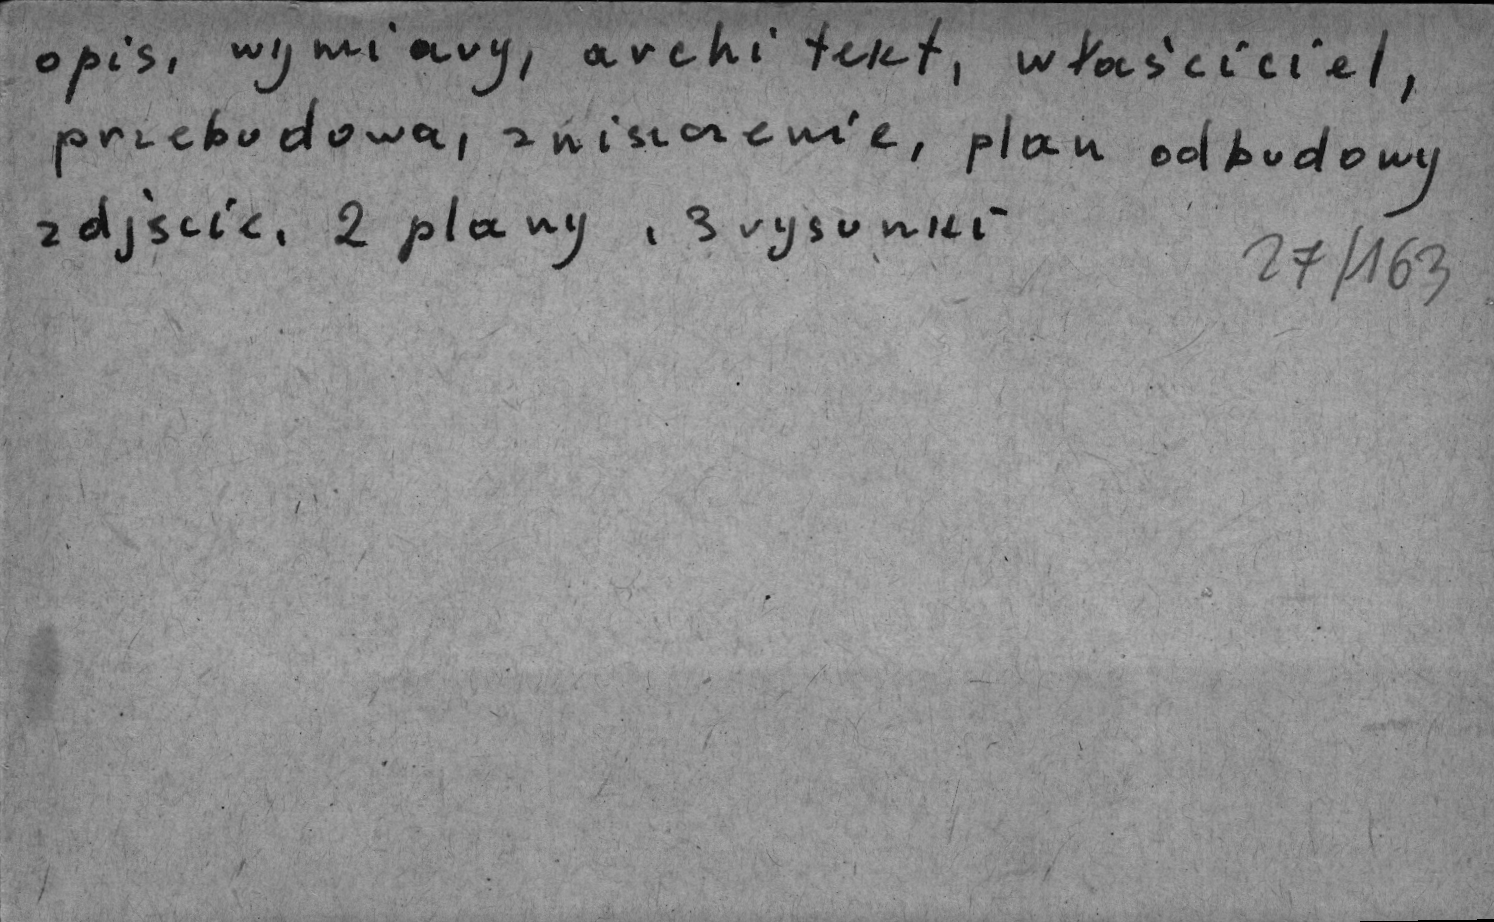 opis, wymiary, architekt, właściciel,
przebudowa, zniszczenie, plan odbudowy
zdjście, 2 plany, 3 rysunki
27/163